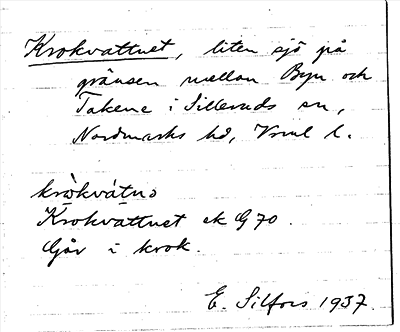 Krokvattnet, liten sjö på
gränsen mellan Byn och
Takene i Silleruds sn,
Nordmarks hd, Vrml l.
kròkvátnə
Krokvattnet ek G 70.
Går i krok.
E. Silfors 1937.